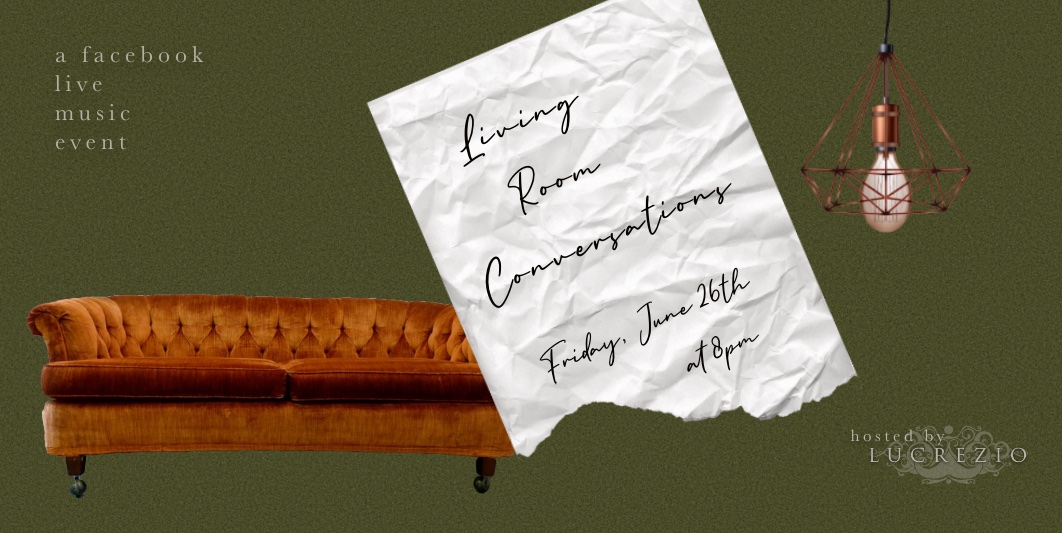 a facebook
live
music
event
Living
Room
Conversations
Friday, June 26th
at 8pm
hosted by
LUCREZIO